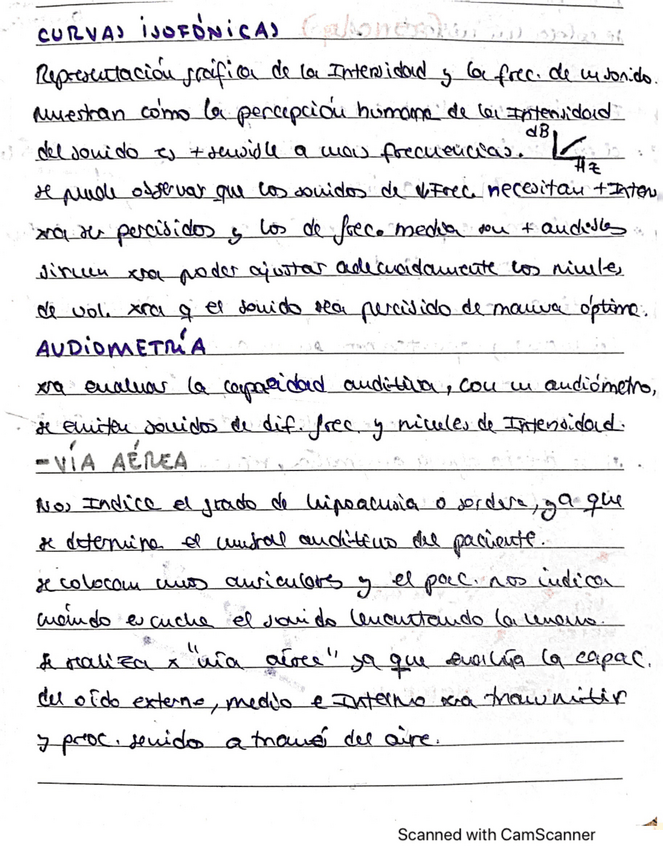 CURVAS ISOFÓNICAS
Representación gráfica de la Intensidad y la frec. de un sonido.
Muestran cómo la percepción humana de la Intensidad
del sonido es + sensible a unas frecuencias.
dB
Hz
se puede observar que los sonidos de ↓Frec necesitan + Inten
xra ser percibidos y los de frec. media son + audibles
sirven xra poder ajustar adecuadamente los niveles
de vol. xra q el sonido sea percibido de manera óptima.
AUDIOMETRÍA
xra evaluar la capacidad auditiva, con un audiómetro,
se emiten sonidos de dif. frec. y niveles de Intensidad.
- VÍA AÉREA
Nos Indica el grado de hipoacusia o sordera, ya que
se determina el umbral auditivo del paciente.
se colocan unos auriculares y el pac. nos indica
cuándo escucha el sonido levantando la mano.
Se realiza x "vía aérea" ya que evalúa la capac.
del oído externo, medio e Interno xra transmitir
y proc. sonido a través del aire.
Scanned with CamScanner